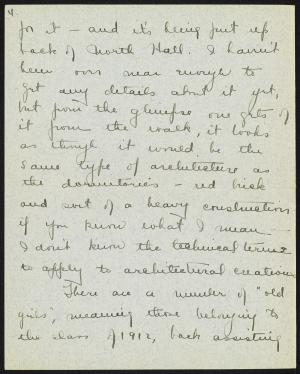 4.
for it – and it's being put up
back of North Hall. I haven't
been over near enough to
get any details about it yet,
but from the glimpse one gets of
it from the walk, it looks
as though it would be the
same type of architecture as
the dormitories – red brick
and sort of a heavy construction
if you know what I mean –
I don't know the technical terms
to apply to architectural creations
There are a number of "old
girls", meaning those belonging to
the class of 1912, back assisting